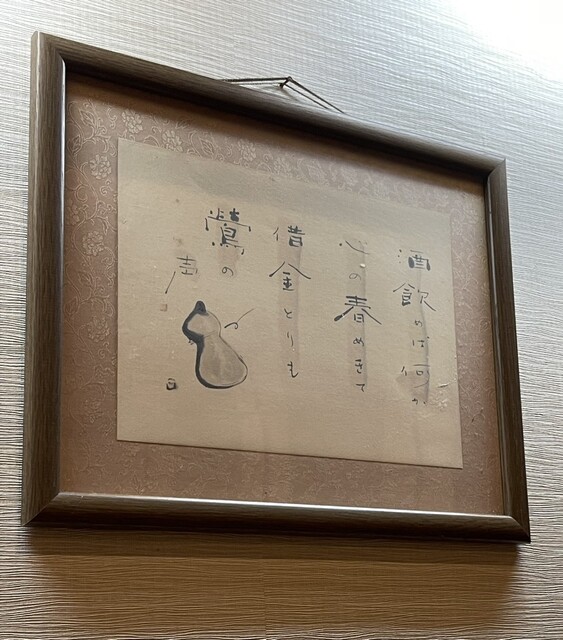 酒飲めば何か
心の春めきて
借金とりも
鶯の
声